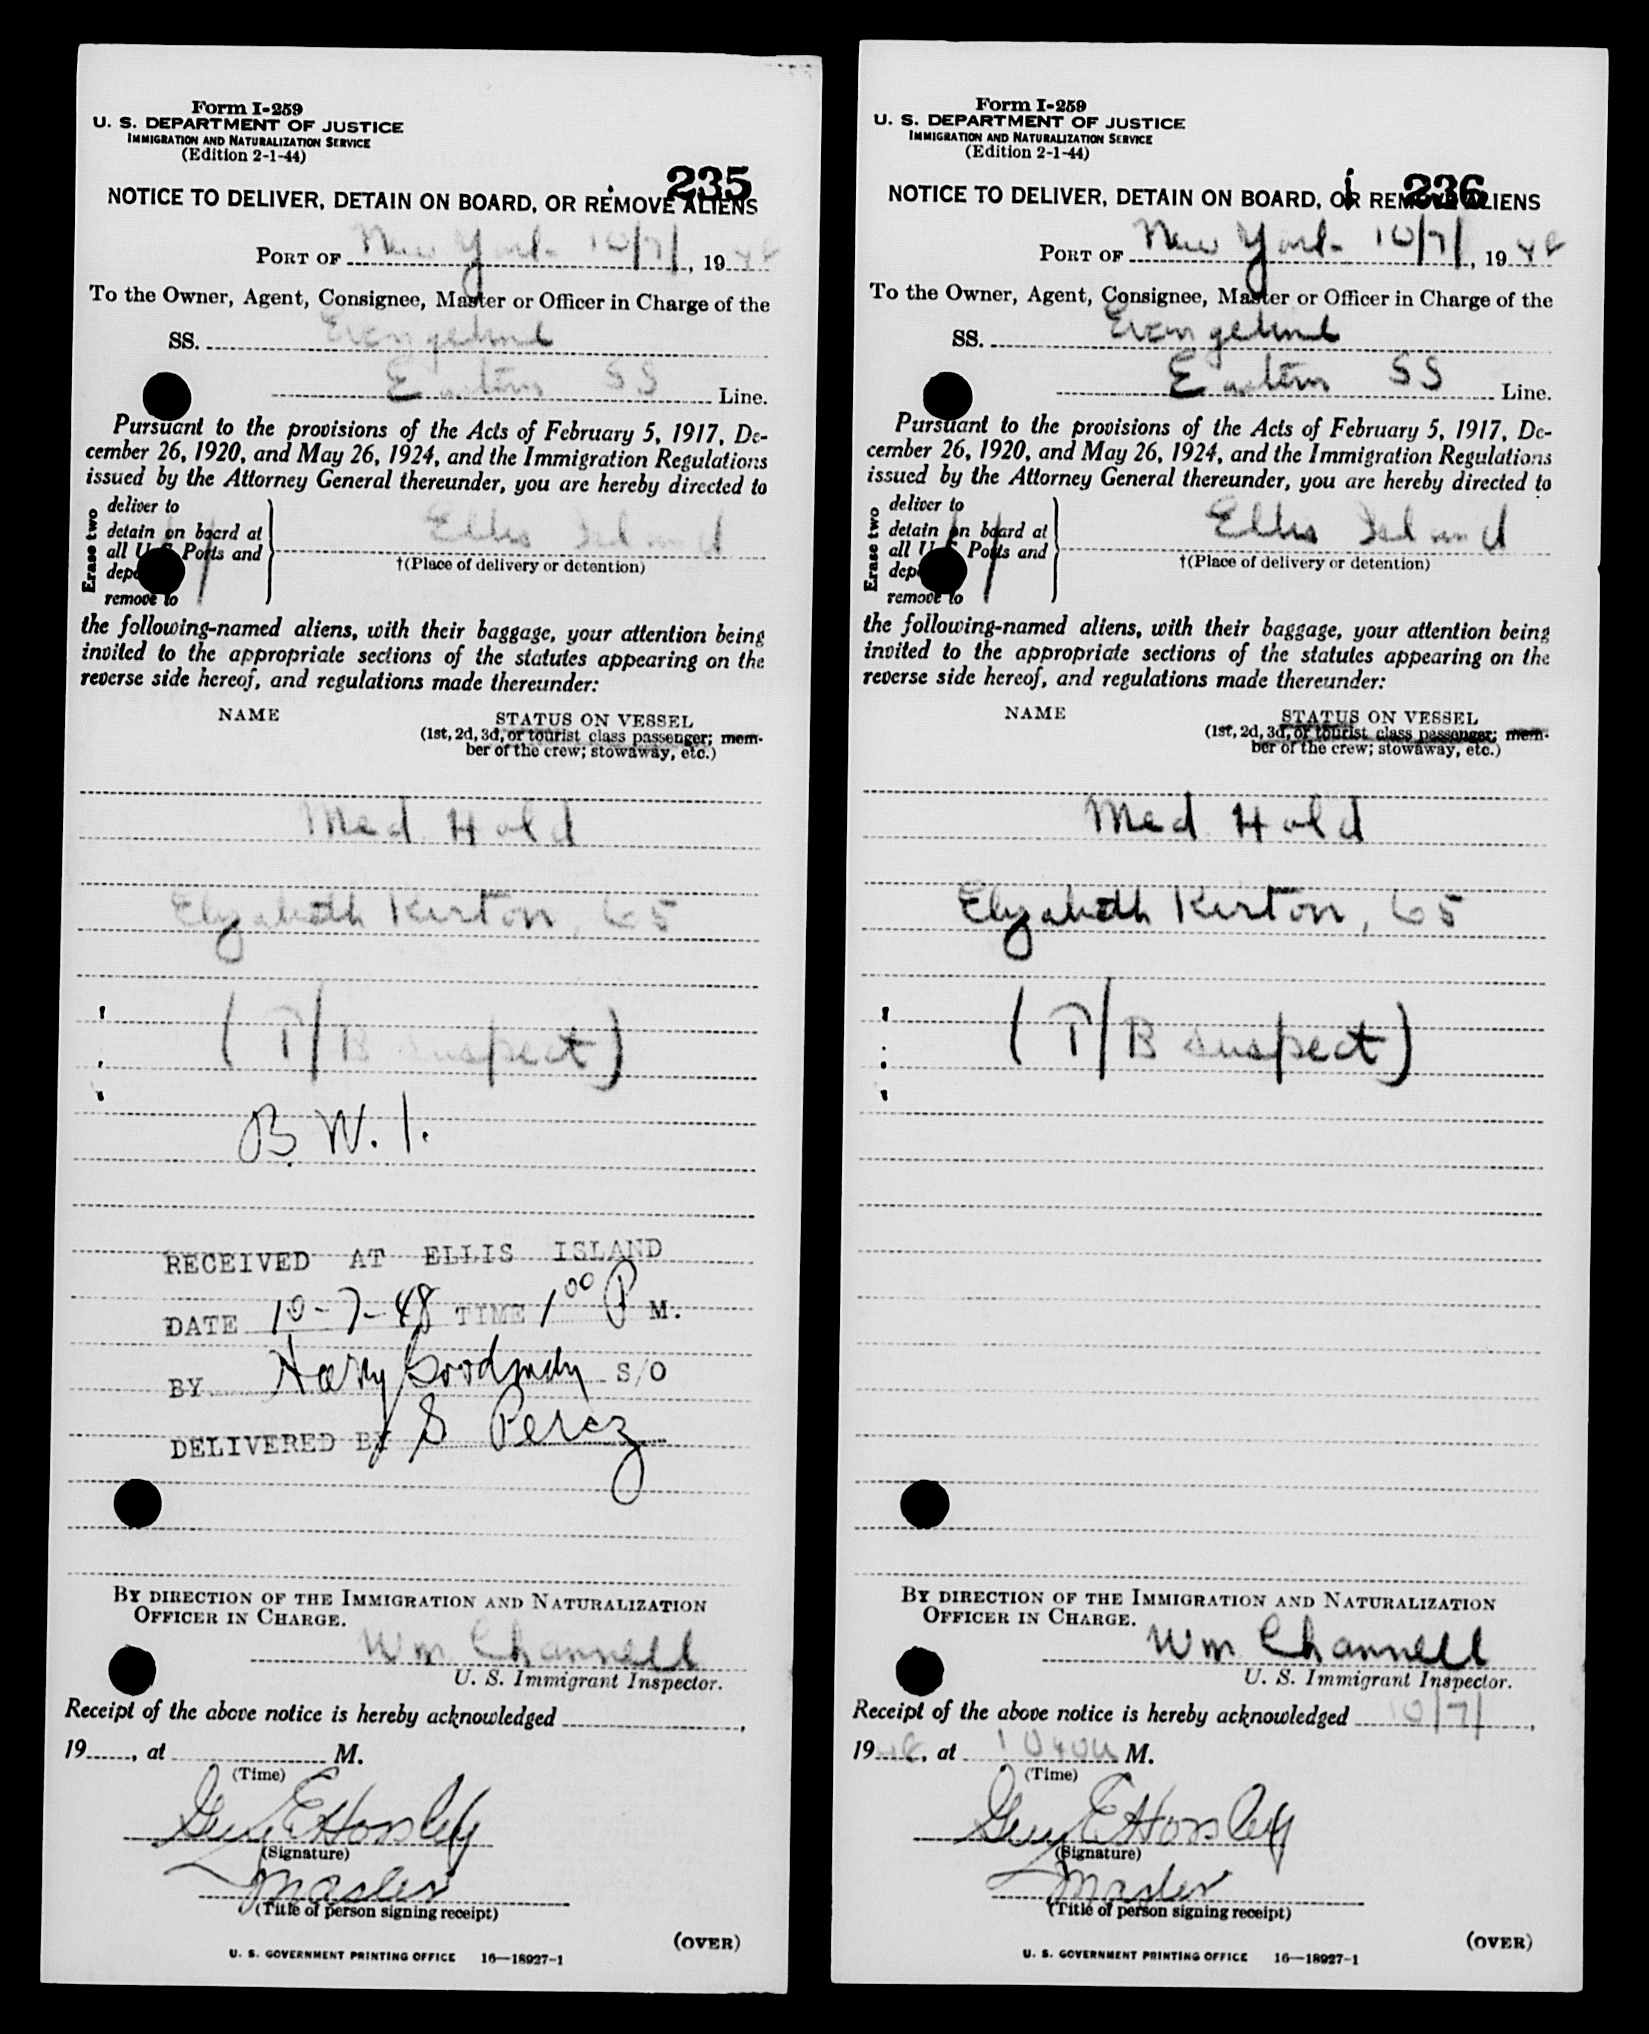 Form I-259
U. S. DEPARTMENT OF JUSTICE
IMMIGRATION AND NATURALIZATION SERVICE
(Edition 2-1-44)
235
NOTICE TO DELIVER, DETAIN ON BOARD, OR REMOVE ALIENS
PORT OF New York 10/7/, 1948
To the Owner, Agent, Consignee, Master or Officer in Charge of the
SS. Evangeline
Eastern SS Line.
Pursuant to the provisions of the Acts of February 5, 1917, De-
cember 26, 1920, and May 26, 1924, and the Immigration Regulations
issued by the Attorney General thereunder, you are hereby directed to
Erase two
deliver to
detain on board at
all U S Ports and
remove to
Ellis Island
†(Place of delivery or detention)
the following-named aliens, with their baggage, your attention being
invited to the appropriate sections of the statutes appearing on the
reverse side hereof, and regulations made thereunder:
NAME
STATUS ON VESSEL
(1st, 2d, 3d, or tourist class passenger; mem-
ber of the crew; stowaway, etc.)
Med Hold
Elizabeth Kirton, 65
(T/B suspect)
B. W. I.
RECEIVED AT ELLIS ISLAND
DATE 10-7-48 TIME 1 00 P M.
BY Harry Goodman S/O
DELIVERED BY S Perez
BY DIRECTION OF THE IMMIGRATION AND NATURALIZATION
OFFICER IN CHARGE.
Wm Channell
U. S. Immigrant Inspector.
Receipt of the above notice is hereby acknowledged
19, at M.
(Time)
Guy E Horsley
(Signature)
Master
(Title of person signing receipt)
(OVER)
U. S. GOVERNMENT PRINTING OFFICE 16—18927-1
Form I-259
U. S. DEPARTMENT OF JUSTICE
IMMIGRATION AND NATURALIZATION SERVICE
(Edition 2-1-44)
236
NOTICE TO DELIVER, DETAIN ON BOARD, OR REMOVE ALIENS
PORT OF New York 10/7/, 1948
To the Owner, Agent, Consignee, Master or Officer in Charge of the
SS. Evangeline
Eastern SS Line.
Pursuant to the provisions of the Acts of February 5, 1917, De-
cember 26, 1920, and May 26, 1924, and the Immigration Regulations
issued by the Attorney General thereunder, you are hereby directed to
Erase two
deliver to
detain on board at
all U S Ports and
remove to
Ellis Island
†(Place of delivery or detention)
the following-named aliens, with their baggage, your attention being
invited to the appropriate sections of the statutes appearing on the
reverse side hereof, and regulations made thereunder:
NAME
STATUS ON VESSEL
(1st, 2d, 3d, or tourist class passenger; mem-
ber of the crew; stowaway, etc.)
Med Hold
Elizabeth Kirton, 65
(T/B suspect)
BY DIRECTION OF THE IMMIGRATION AND NATURALIZATION
OFFICER IN CHARGE.
Wm Channell
U. S. Immigrant Inspector.
Receipt of the above notice is hereby acknowledged 10/7/,
1948, at 1040a M.
(Time)
Guy E Horsley
(Signature)
Master
(Title of person signing receipt)
(OVER)
U. S. GOVERNMENT PRINTING OFFICE 16—18927-1